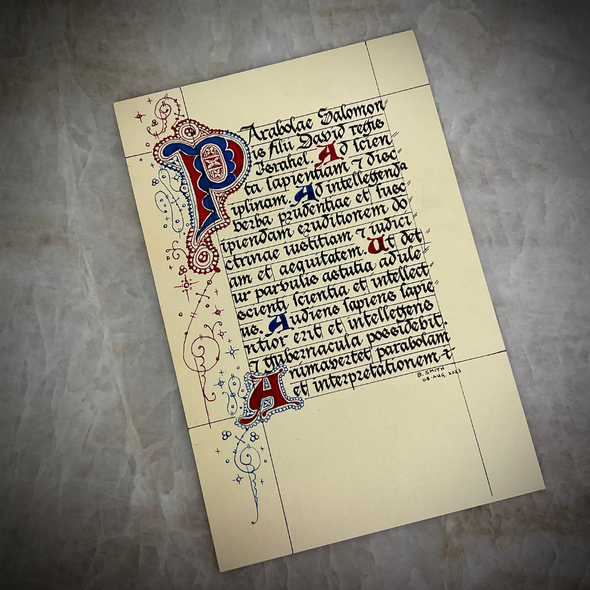 Parabolae Salomon
is filii David regis
Israhel. Ad scien
ta sapientiam ⁊ disc
iplinam. Ad intellegenda
verba prudentiae et susc
ipiendam eruditionem do
ctrinae iustitiam ⁊ iudici
um et aequitatem. Ut det
ur parvulis astutia adule
scenti scientia et intellect
us. Audiens sapiens sapie
ntior erit et intellegens
⁊ gubernacula possidebit.
Animavertet parabolam
et interpretationem ⁊
B. SMITH
08 AUG. 2023